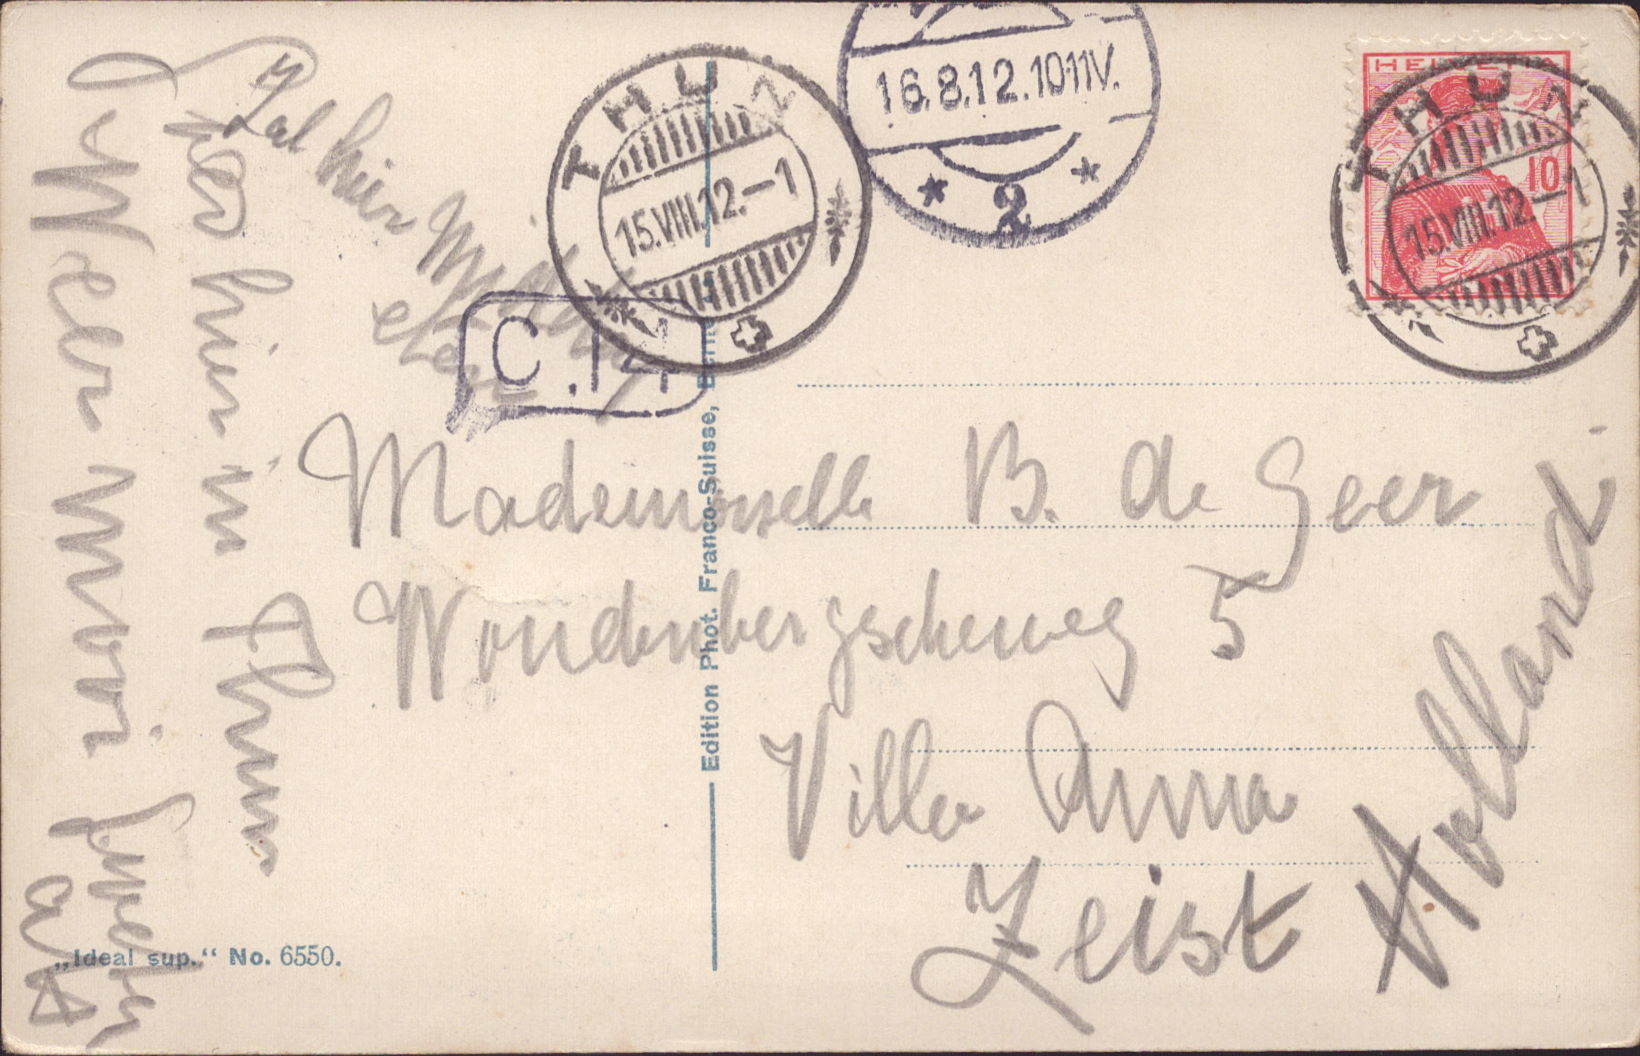 Zal hier
eten
Pas hier in Thun
Weer mooi
THUN
15.VIII.12.–1
16.8.12.10-11V.
2
HELVETIA
10
THUN
15.VIII.12.–1
C.14
Mademoiselle B. de Geer
Woudenbergscheweg 5
Villa Anna
Zeist
Holland
Edition Phot. Franco-Suisse,
„Ideal sup.“ No. 6550.